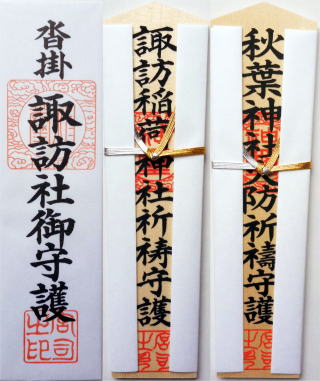 沓掛
諏訪社御守護
諏訪稲荷神社祈祷守護
秋葉神社火防祈禱守護